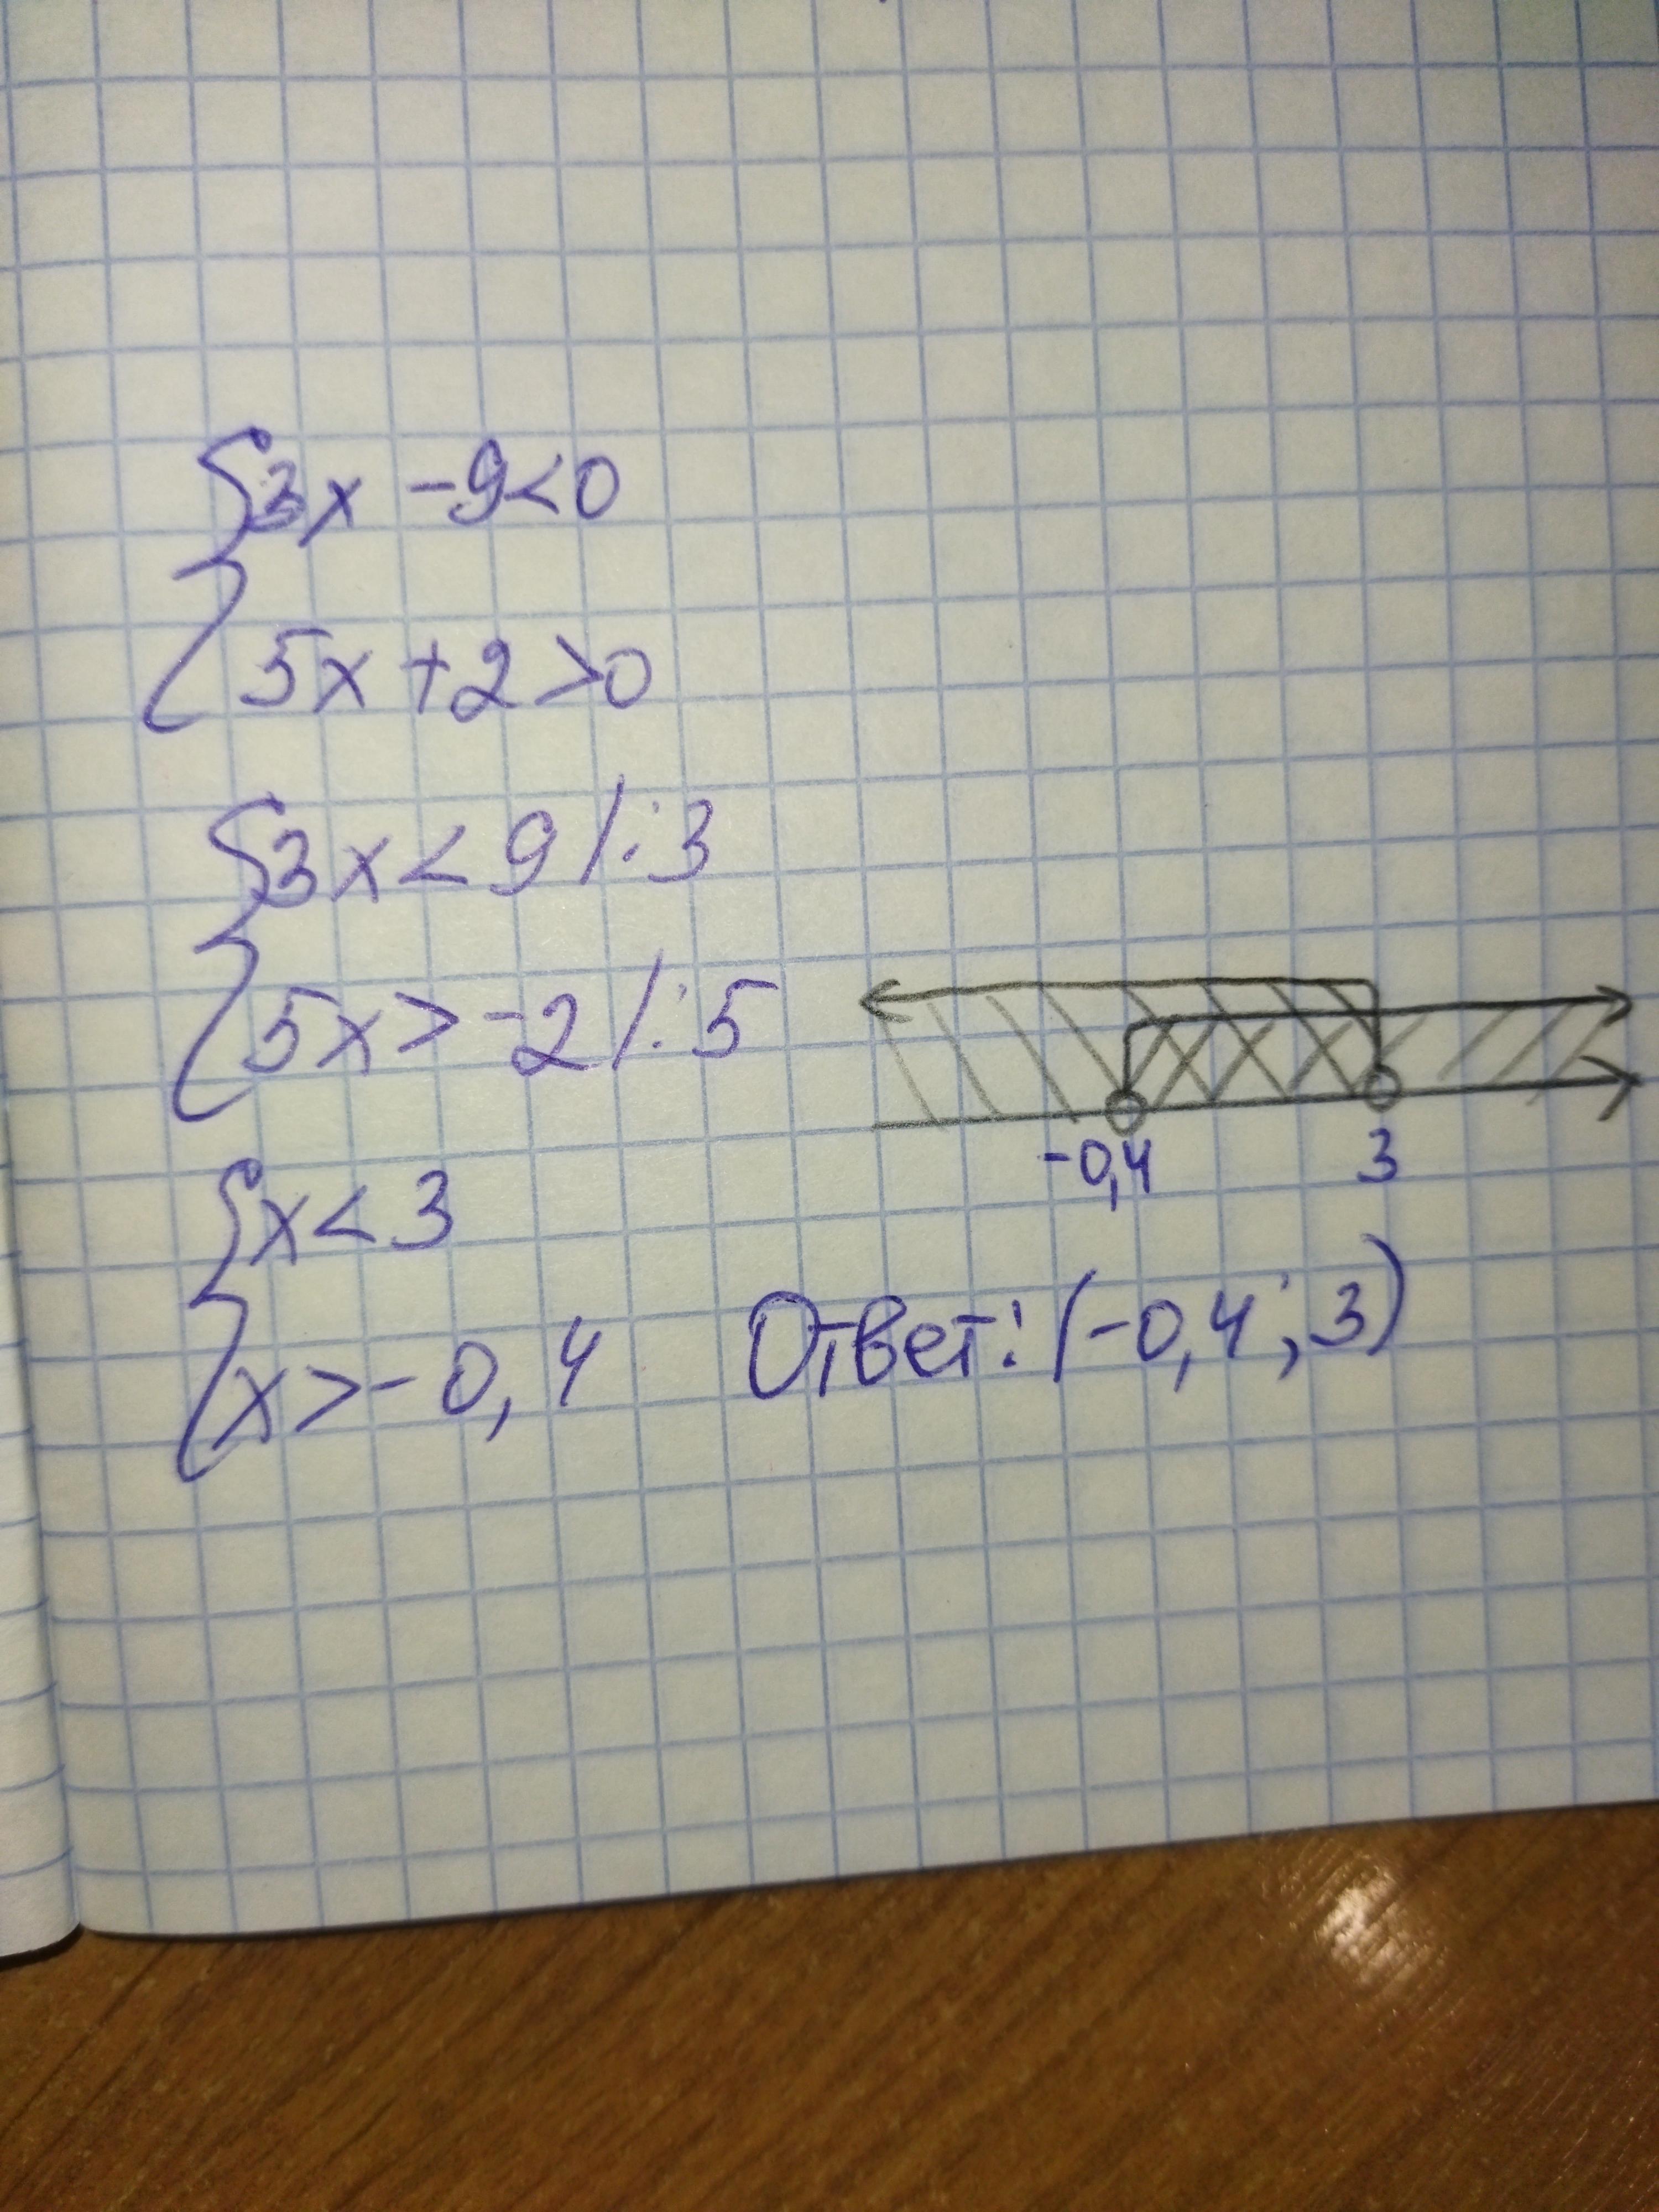 3x - 9 < 0
5x + 2 > 0
3x < 9 /:3
5x > -2 /:5
-0,4 3
x < 3
x > -0,4
Ответ: (-0,4; 3)